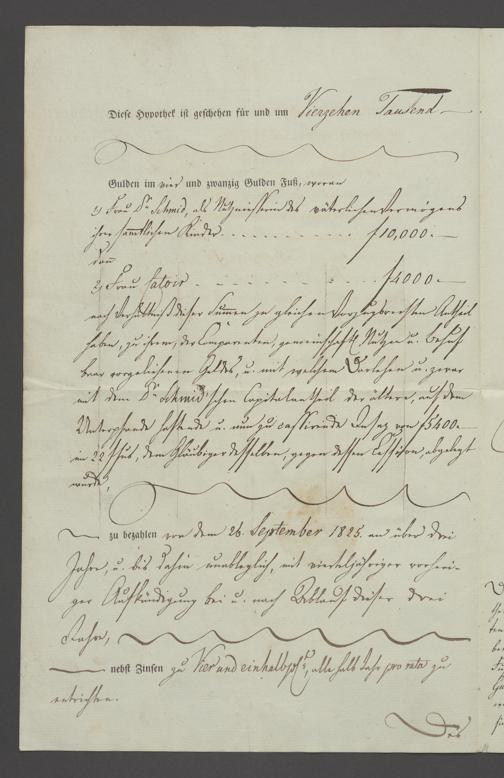 Diese Hypothek ist geschehen für und um Vierzehen Tausend
Gulden im vier und zwanzig Gulden Fuß, woran
1) Frau Dr. Schmid, als Nutznießerin des väterlichen Vermögens
ihrer sämmtlichen Kinder f 10,000.
dann
2) Frau Jatoir f 4000.
nach Verhältniß dieser Summen zu gleichen Vorzugsrechten Antheil
haben, zu ihrem, der Comparenten, gemeinschaftl. Nutzen u. Behuf
baar vorgeliehenen Geldes, u. mit welchem Darlehen u. zwar
mit dem Dr. Schmid'schen Capitalantheil der ältere, auf dem
Unterpfande haftende u. nun zu cassirende Insaz von f 5400.
im 22 fl Fuß, dem Gläubiger desselben, gegen dessen Cession, abgelegt
wurde,
zu bezahlen von dem 26. September 1825. an über drei
Jahre, u. bis dahin unablöslich, mit vierteljähriger vorheri-
ger Aufkündigung bei u. nach Ablauf dieser drei
Jahre,
nebst Zinsen zu Vier und einhalb pCt, alle halb Jahr pro rata zu
entrichten.
Des